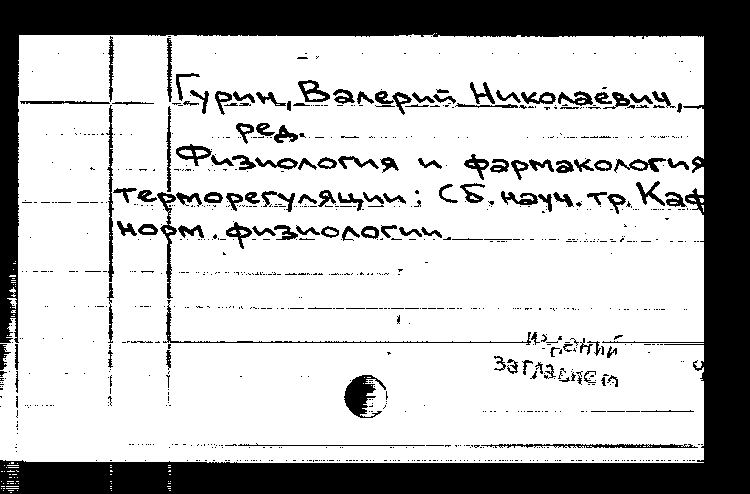 Гурин, Валерий Николаевич,
ред.
Физиология и фармакология
терморегуляции: Сб. науч. тр. Каф
норм. физиологии.